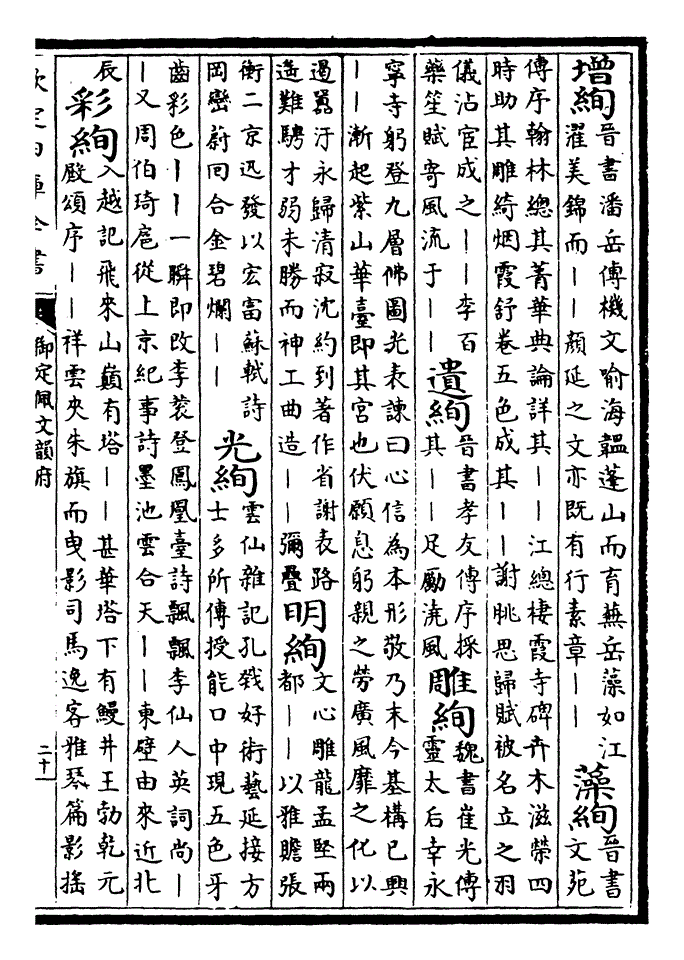 增絢晉書潘岳傳機文喻海韞蓬山而育蕪岳藻如江
濯美錦而——顔延之文亦既有行素章——
藻絢晉書
文苑
傳序翰林總其菁華典論詳其——江總棲霞寺碑卉木滋榮四
時助其雕綺烟霞舒卷五色成其——謝眺思歸賦被名立之羽
儀沾宦成之——李百
藥笙賦寄風流于——
遺絢晉書孝友傳序採
其——足勵澆風
雕絢魏書崔光傳
靈太后幸永
寧寺躬登九層佛圖光表諫曰心信為本形敬乃末今基構已興
——漸起紫山華臺即其宮也伏願息躬親之勞廣風靡之化以
遏囂汙永歸清寂沈約到著作省謝表路
遥難騁才弱未勝而神工曲造——彌疊
明絢文心雕龍孟堅兩
都——以雅贍張
衡二京迅發以宏富蘇軾詩
岡巒蔚回合金碧爛——
光絢雲仙雜記孔戣好術藝延接方
士多所傳授能口中現五色牙
齒彩色——一瞬即改李裘登鳳凰臺詩飄飄李仙人英詞尚—
—又周伯琦扈從上京紀事詩墨池雲合天——東壁由來近北
辰
彩絢入越記飛來山巔有塔——甚華塔下有鰻井王勃乾元
殿頌序——祥雲夾朱旗而曳影司馬逸客雅琴篇影摇
欽定四庫全書
御定佩文韻府
二十